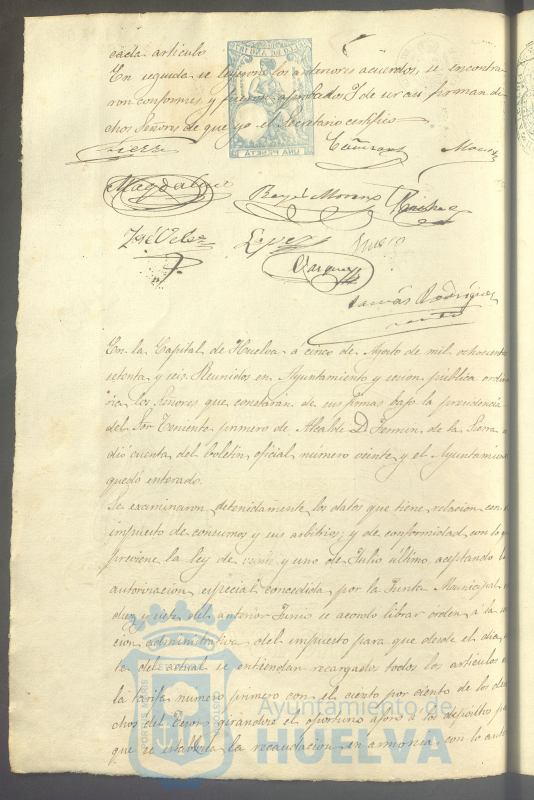 cada articulo
En seguida se leyeron los anteriores acuerdos, se encontra-
ron conformes y fueron aprobados. Y de ser asi firman di-
chos Señores de que yo el Secretario certifico
UNA PESETA
Magdalena
José Vele
Lopez
Vazquez
Tomás Rodriguez
En la Capital de Huelva á cinco de Agosto de mil ochocientos
setenta y seis. Reunidos en Ayuntamiento y sesion publica ordi-
ria los Señores que constarán de sus firmas bajo la presidencia
del Sor. Teniente primero de Alcalde D. Fermin de la Sierra
dió cuenta del boletin oficial numero veinte y el Ayuntamien
quedó enterado.
Se examinaron detenidamente los datos que tiene relacion con
impuesto de consumos y sus arbitrios; y de conformidad con lo q
previene la ley de veinte y uno de Julio último, aceptando l
autorizacion especial concedida por la Junta Municipal
diez y siete del anterior Junio se acordó librar orden á la
cion administrativa del impuesto para que desde el dia
te del actual se entiendan recargados todos los articulos
la tarifa numero primero con el ciento por ciento de los dere
chos del Tesoro girandose el oportuno aforo á los depositos p
que se establezca la recaudacion en armonia con lo auto
Ayuntamiento de
HUELVA